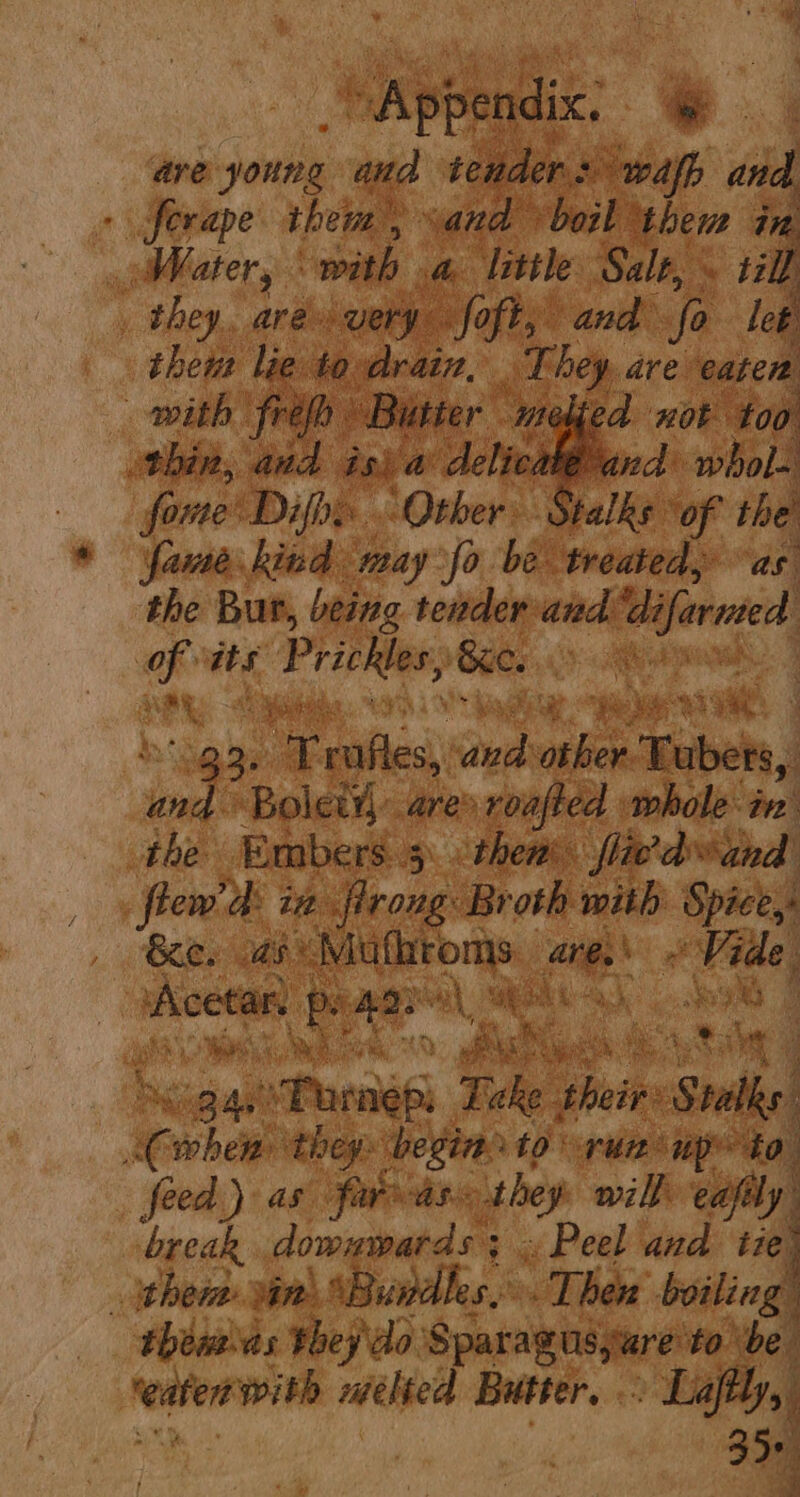 Appendix.
are young and tender: waſh and
ſcrape them, and boil them in
Water, with a little Salt, till
they are very ſoft, and ſo let
them lie to drain. They are eaten
with freſh Butter melted not too
thin, and is a delicate and whol-
ſome Diſh. Other Stalks of the
ſame kind may ſo be treated, as
the Bur, being tender and diſarmed
of its Prickles, &c.
33. Trufles, and other Tubers,
and Boleti, are roaſted whole in
the Embers; then ſlic'd and
ſtew'd in ſtrong Broth with Spice,
&c. as Muſhroms are. Vide
Acetar. p. 42.
34. Turnep. Take their Stalks
(when they begin to run up to
ſeed) as far as they will eaſily
break downwards: Peel and tie
them in Bundles. Then boiling
them as they do Sparagus, are to be
eaten with melted Butter. Laſtly,
35.